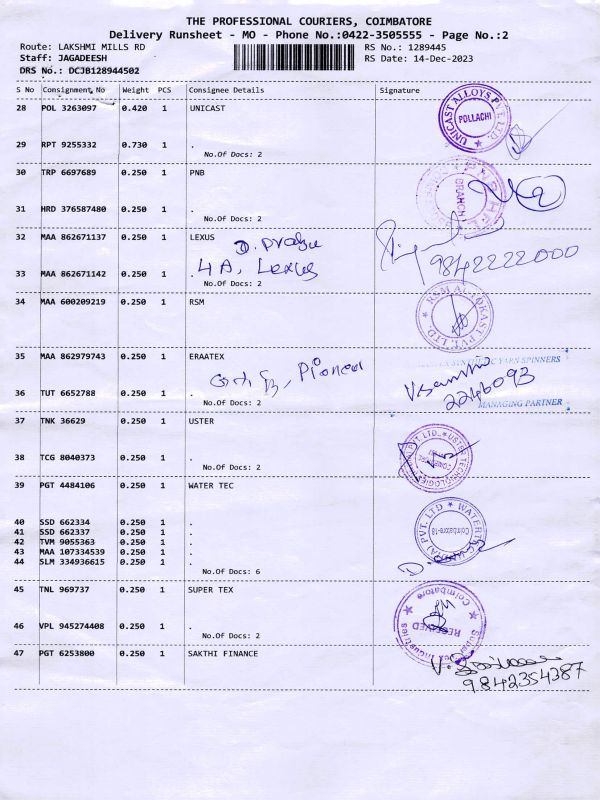 THE PROFESSIONAL COURIERS, COIMBATORE
Delivery Runsheet - MO - Phone No.:0422-3505555 - Page No.:2
Route: LAKSHMI MILLS RD
RS No.: 1289445
Staff: JAGADEESH
RS Date: 14-Dec-2023
DRS No.: DCJB128944502
S No Consignment No Weight PCS Consignee Details Signature
28 POL 3263097 0.420 1 UNICAST
UNICAST ALLOYS PVT. LTD.
POLLACHI
29 RPT 9255332 0.730 1 .
No.Of Docs: 2
30 TRP 6697689 0.250 1 PNB
BRANCH
31 HRD 376587480 0.250 1 .
No.Of Docs: 2
32 MAA 862671137 0.250 1 LEXUS
D. Prabu
9842222000
33 MAA 862671142 0.250 1 .
4 A, Lexus
No.Of Docs: 2
34 MAA 600209219 0.250 1 RSM
RSM AUTOKAST PVT. LTD.
35 MAA 862979743 0.250 1 ERAATEX
SYNTHETIC YARN SPINNERS
Pioneer
2246093
36 TUT 6652788 0.250 1 .
No.Of Docs: 2
MANAGING PARTNER
37 TNK 36629 0.250 1 USTER
USTER TECHNOLOGIES PVT LTD.
38 TCG 8040373 0.250 1 .
No.Of Docs: 2
39 PGT 4484106 0.250 1 WATER TEC
WATERTEC PVT. LTD
Coimbatore-18
40 SSD 662334 0.250 1 .
41 SSD 662337 0.250 1 .
42 TVM 9055363 0.250 1 .
43 MAA 107334539 0.250 1 .
44 SLM 334936615 0.250 1 .
No.Of Docs: 6
45 TNL 969737 0.250 1 SUPER TEX
Coimbatore
RECEIVED
Industries
46 VPL 945274408 0.250 1 .
No.Of Docs: 2
47 PGT 6253800 0.250 1 SAKTHI FINANCE
9842354387